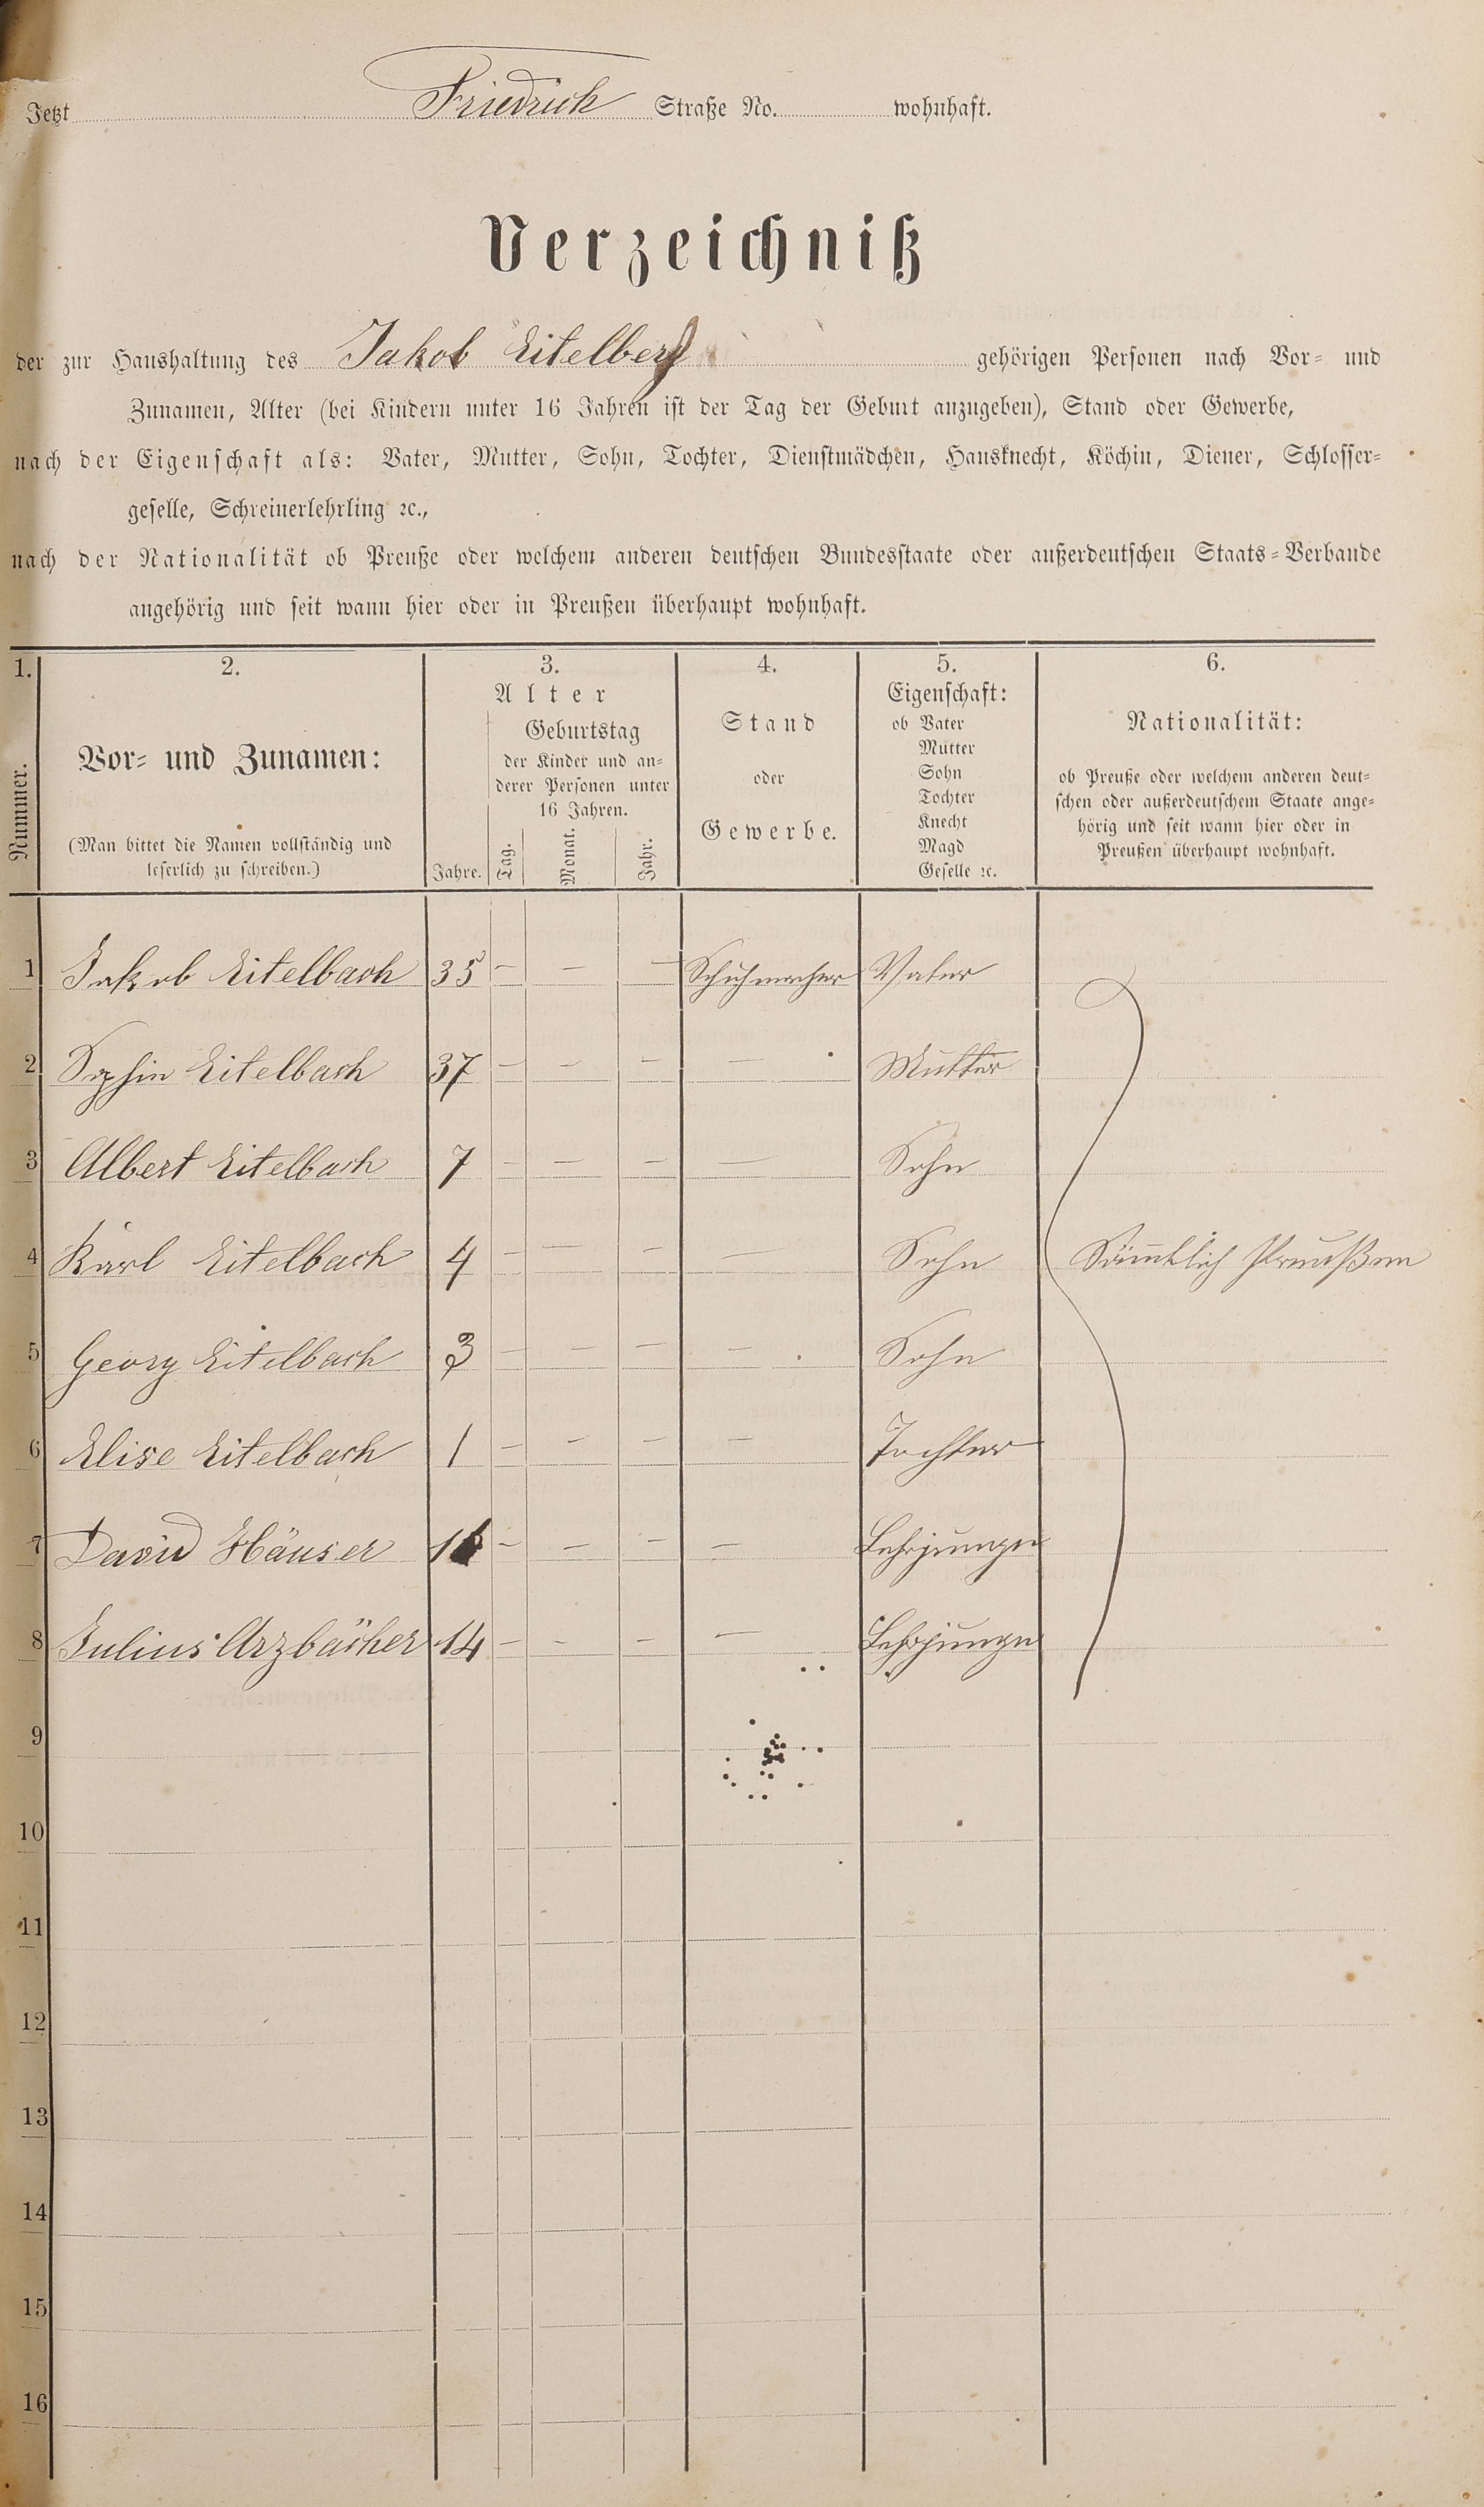 Jetzt Friedrich Straße No. wohnhaft.
Verzeichniß
der zur Haushaltung des Jakob Eitelberg gehörigen Personen nach Vor- und
Zunamen, Alter (bei Kindern unter 16 Jahren ist der Tag der Geburt anzugeben), Stand oder Gewerbe,
nach der Eigenschaft als: Vater, Mutter, Sohn, Tochter, Dienstmädchen, Hausknecht, Köchin, Diener, Schlosser-
geselle, Schreinerlehrling ꝛc.,
nach der Nationalität ob Preuße oder welchem anderen deutschen Bundesstaate oder außerdeutschen Staats-Verbande
angehörig und seit wann hier oder in Preußen überhaupt wohnhaft.
1.
Nummer.
2.
Vor- und Zunamen:
(Man bittet die Namen vollständig und
leserlich zu schreiben.)
3.
Alter
Jahre.
Geburtstag
der Kinder und an-
derer Personen unter
16 Jahren.
Tag. Monat. Jahr.
4.
Stand
oder
Gewerbe.
5.
Eigenschaft:
ob Vater
Mutter
Sohn
Tochter
Knecht
Magd
Geselle ꝛc.
6.
Nationalität:
ob Preuße oder welchem anderen deut-
schen oder außerdeutschem Staate ange-
hörig und seit wann hier oder in
Preußen überhaupt wohnhaft.
1 Jakob Eitelbach 35 — — — Schuhmacher Vater
2 Sophie Eitelbach 37 — — — — Mutter
3 Albert Eitelbach 7 — — — — Sohn
4 Karl Eitelbach 4 — — — — Sohn Sämtlich Preußen
5 Georg Eitelbach 3 — — — — Sohn
6 Elise Eitelbach 1 — — — — Tochter
7 David Häuser 16 — — — — Lehrjunge
8 Julius Arzbächer 14 — — — — Lehrjunge
9
10
11
12
13
14
15
16